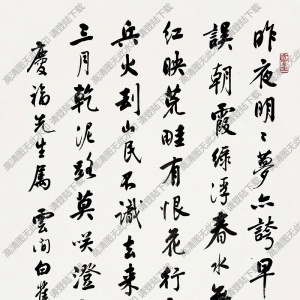 昨夜明〻夢亦誇早
誤朝霞綠浮春水
紅映荒畦有恨花行
兵火到山民不識去来
三月乾泥路莫咲澄
慶福先生属 雲间白蕉